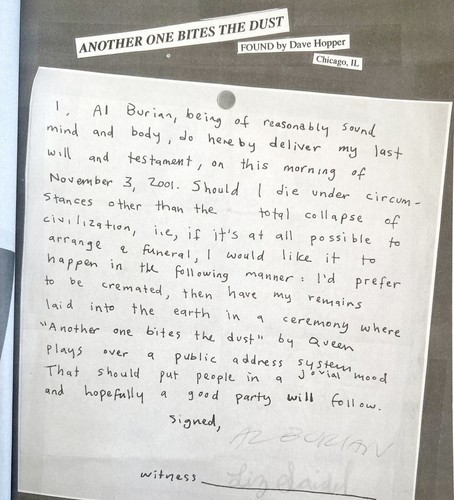 ANOTHER ONE BITES THE DUST
FOUND by Dave Hopper
Chicago, IL
I, Al Burian, being of reasonably sound
mind and body, do hereby deliver my last
will and testament, on this morning of
November 3, 2001. Should I die under circum-
stances other than the total collapse of
civilization, i.e, if it's at all possible to
arrange a funeral, I would like it to
happen in the following manner: I'd prefer
to be cremated, then have my remains
laid into the earth in a ceremony where
"Another one bites the dust" by Queen
plays over a public address system.
That should put people in a jovial mood
and hopefully a good party will follow.
Signed,
AL BURIAN
witness Liz